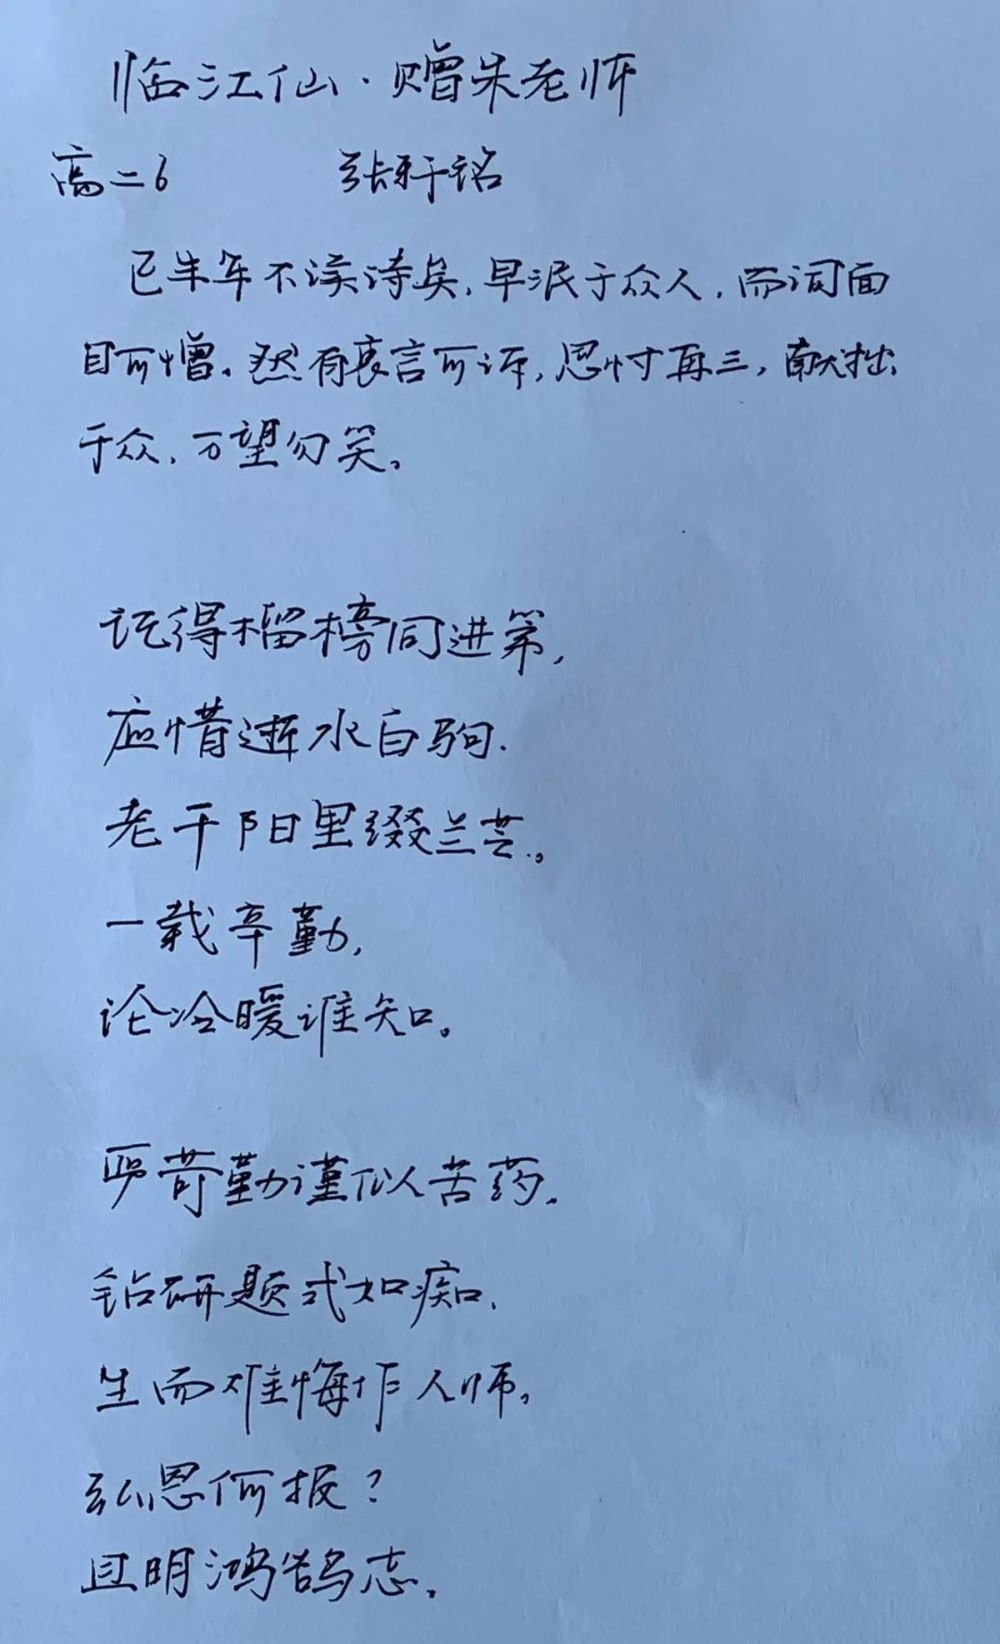 临江仙·赠朱老师
高二6 张轩铭
已半年不读诗矣,早泯于众人,而词面
目可憎。然有衷言可诉,思忖再三,献拙
于众,万望勿笑。
记得榴榜同进第,
应惜逝水白驹.
老干阳里缀兰芸。
一载辛勤,
论冷暖谁知。
严苛勤谨似苦药.
钻研题式如痴.
生而难悔作人师。
弘恩何报?
且明鸿鹄志。